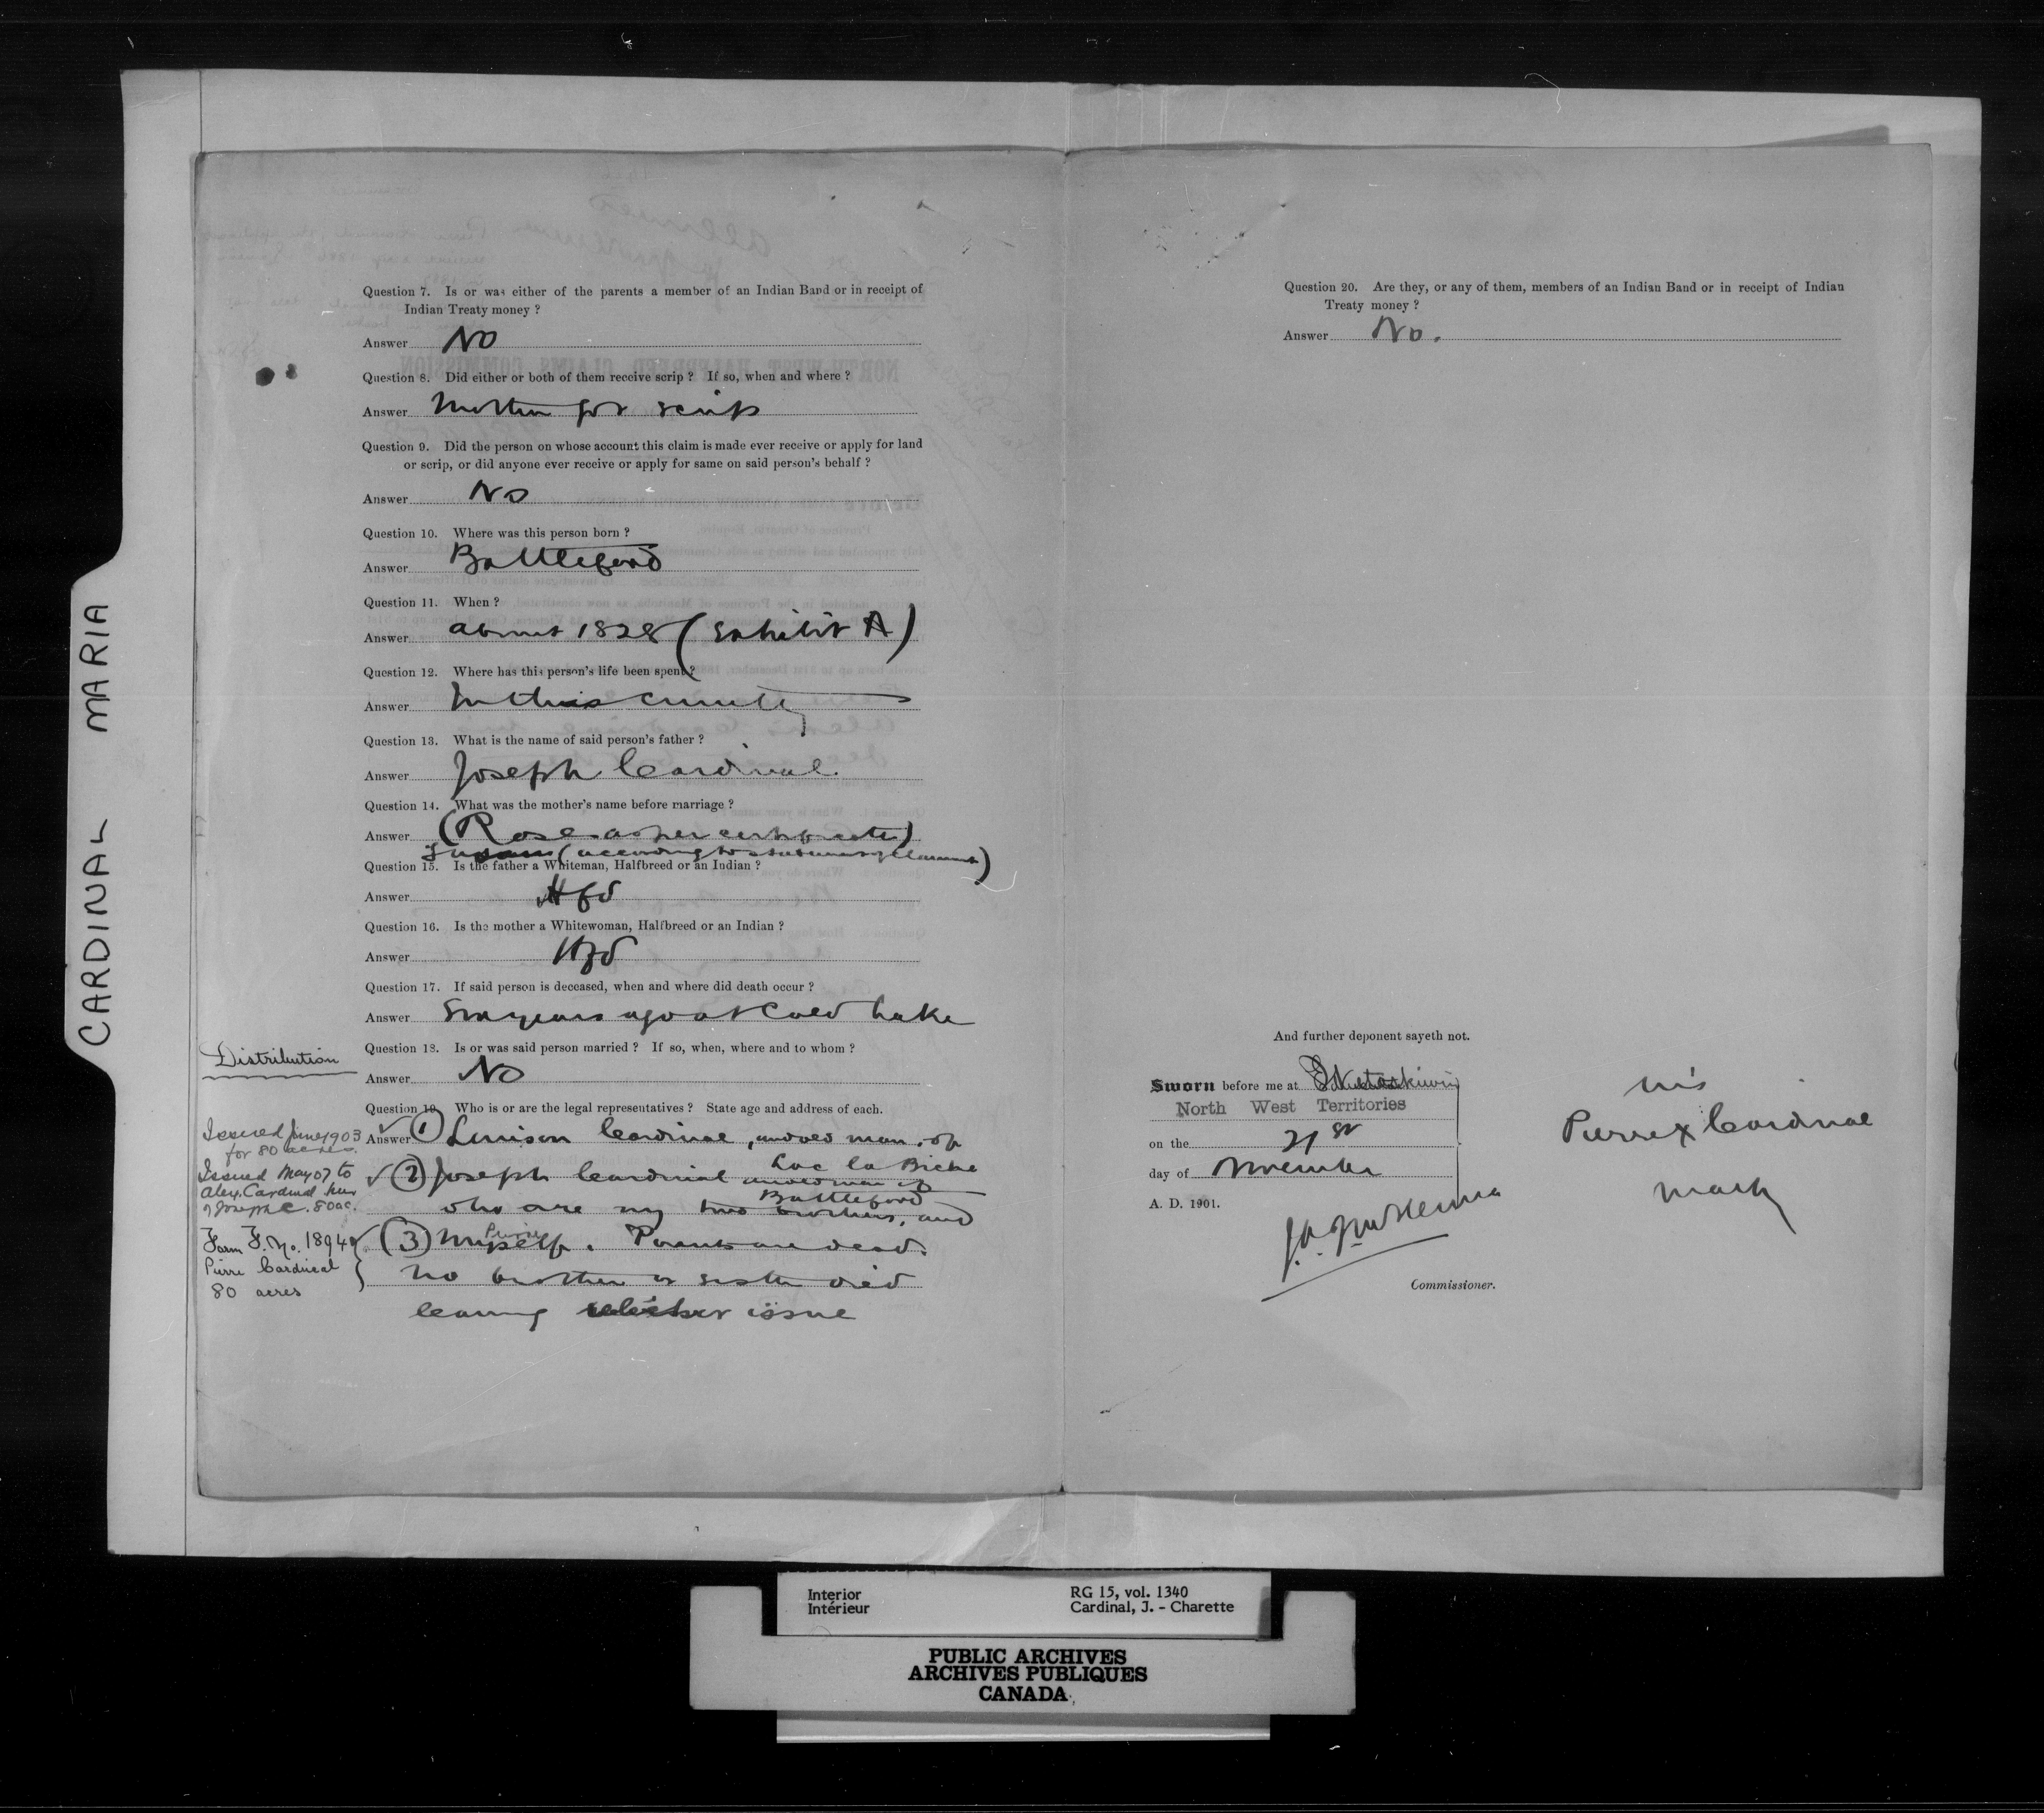 CARDINAL MARIA
Question 7. Is or was either of the parents a member of an Indian Band or in receipt of
Indian Treaty money ?
Answer No
Question 8. Did either or both of them receive scrip ? If so, when and where ?
Answer Mother got scrip
Question 9. Did the person on whose account this claim is made ever receive or apply for land
or scrip, or did anyone ever receive or apply for same on said person's behalf ?
Answer No
Question 10. Where was this person born ?
Answer Battleford
Question 11. When ?
Answer about 1828 (Exhibit A)
Question 12. Where has this person's life been spent ?
Answer In this country
Question 13. What is the name of said person's father ?
Answer Joseph Cardinal.
Question 14. What was the mother's name before marriage ?
Answer (Rose as per certificate)
(according to statement of claimant)
Question 15. Is the father a Whiteman, Halfbreed or an Indian ?
Answer Hfd
Question 16. Is the mother a Whitewoman, Halfbreed or an Indian ?
Answer Hfd
Question 17. If said person is deceased, when and where did death occur ?
Answer Six years ago at Cold Lake
Question 18. Is or was said person married ? If so, when, where and to whom ?
Answer No
Question 19. Who is or are the legal representatives ? State age and address of each.
Answer (1) Louison Cardinal, an old man, of
Lac la Biche
(2) Joseph Cardinal an old man of
Battleford
who are my two brothers, and
Pierre
(3) Myself. Parents are dead.
No brother or sister died
leaving issue
Distribution
Issued June 1903
for 80 acres.
Issued May 07 to
Alex. Cardinal heir
of Joseph C. 80 ac.
Form F. No. 1894
Pierre Cardinal
80 acres
Question 20. Are they, or any of them, members of an Indian Band or in receipt of Indian
Treaty money ?
Answer No.
And further deponent sayeth not.
Sworn before me at Wetaskiwin
North West Territories
on the 21st
day of November
A. D. 1901.
Commissioner.
his
Pierre x Cardinal
mark
Interior
Intérieur
RG 15, vol. 1340
Cardinal, J. - Charette
PUBLIC ARCHIVES
ARCHIVES PUBLIQUES
CANADA